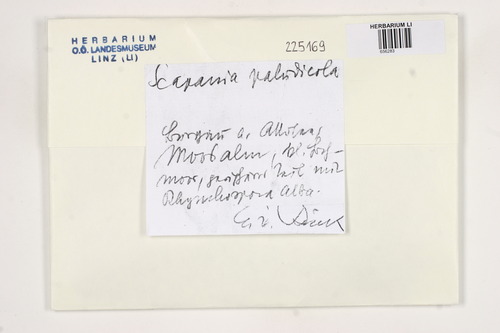 HERBARIUM
O.Ö. LANDESMUSEUM
LINZ (LI)
225169
HERBARIUM LI
Scapania paludicola
Burgau a. Attersee,
Moosalm, kl. Hoch-
moor, Teil mit
Rhynchospora alba.